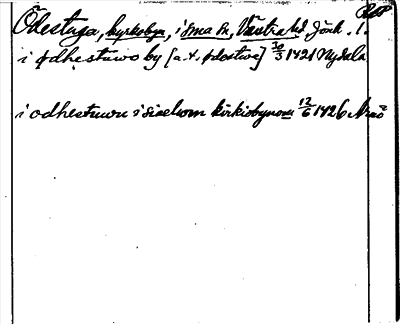 Ödestuga, kyrkobyn, i sma sn, Västra hd. Jönk. l.
i ødhestuwo by [a. t. ødostwe] 30/3 1421 Nydala
i odhestuwu i sielwom kirkiobynom 12/6 1426